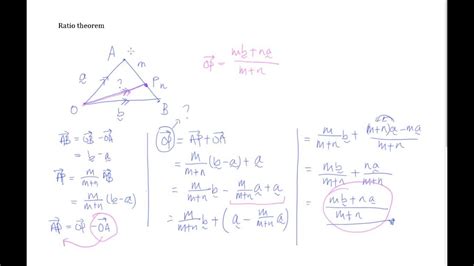 Ratio theorem
A
m
P
n
a
?
O
b
B
OP = mb + na / m+n
AB = OB - OA
= b - a
AP = m/m+n AB
= m/m+n (b - a)
AP = OP - OA
?
OP = AP + OA
= m/m+n (b - a) + a
= m/m+n b - m/m+n a + a
= m/m+n b + (a - m/m+n a)
= m/m+n b + (m+n)a - ma / m+n
= mb/m+n + na/m+n
= mb + na / m+n